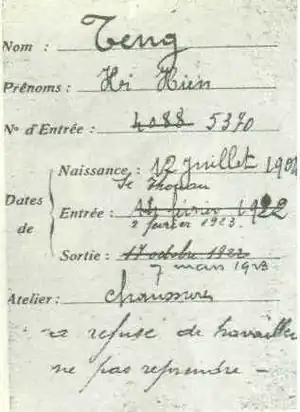 Nom : Teng
Prénoms : Hi Hien
N° d'Entrée : 4088 5370
Naissance : 12 juillet 190
Dates de
Entrée : 14 février 1922
2 février 1923.
Sortie : 17 octobre 1922
7 mars 1923
Atelier : chaussures
a refusé de travailler
ne pas reprendre -